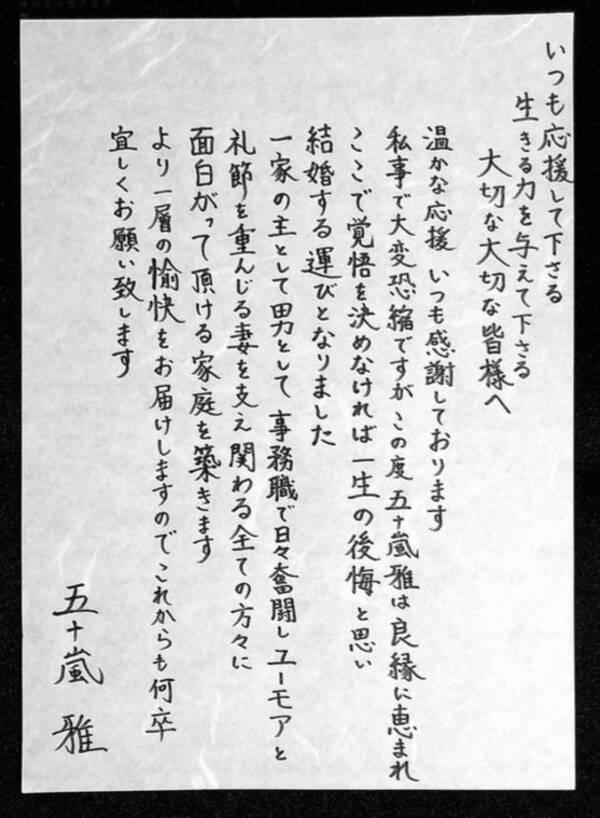 いつも応援して下さる
生きる力を与えて下さる
大切な大切な皆様へ
温かな応援 いつも感謝しております
私事で大変恐縮ですが この度 五十嵐雅は良縁に恵まれ
ここで覚悟を決めなければ 一生の後悔 と思い
結婚する運びとなりました
一家の主として 男として 事務職で日々奮闘し ユーモアと
礼節を重んじる妻を支え 関わる全ての方々に
面白がって頂ける家庭を築きます
より一層の愉快をお届けしますので これからも何卒
宜しくお願い致します
五十嵐 雅